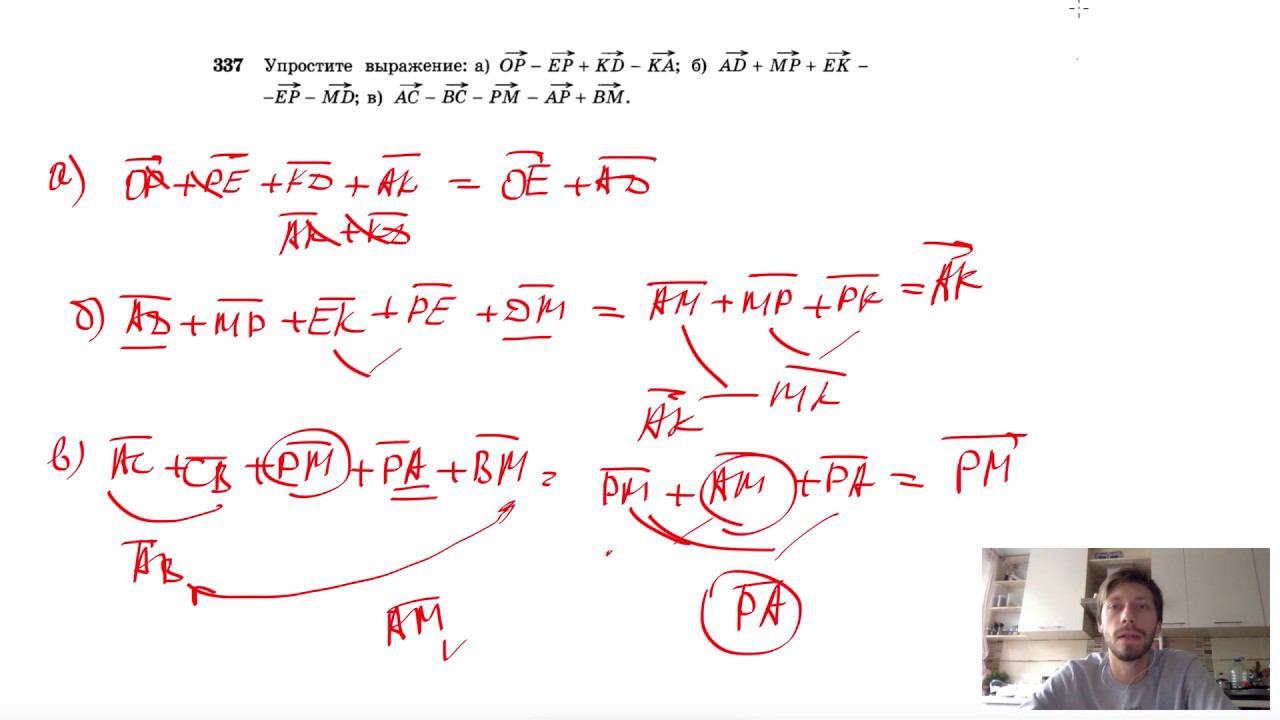 337 Упростите выражение: а) OP – EP + KD – KA; б) AD + MP + EK –
–EP – MD; в) AC – BC – PM – AP + BM.
а) OP + PE + KD + AK = OE + AD
AK + KD
б) AD + MP + EK + PE + DM = AM + MP + PK = AK
AK MK
в) AC + CB + PM + PA + BM = PM + AM + PA = PM
AB
AM
PA